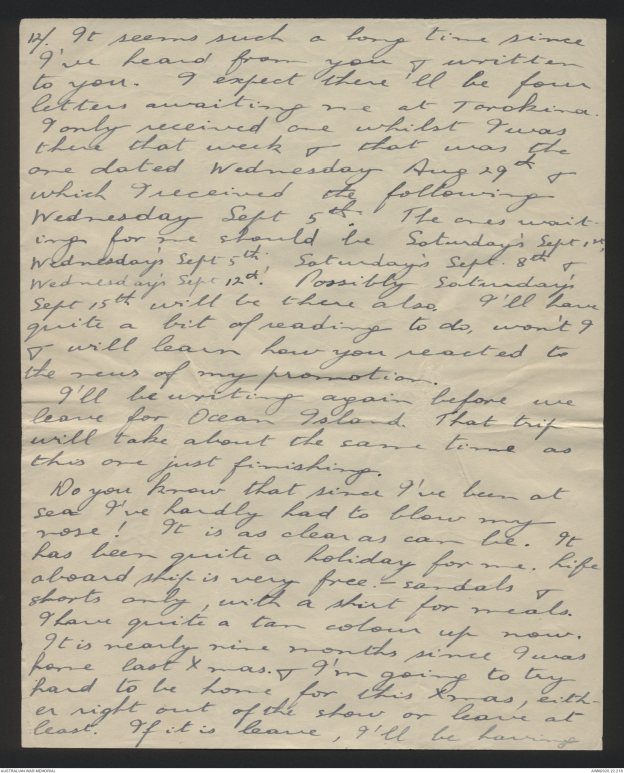 12/. It seems such a long time since
I've heard from you & written
to you. I expect there'll be four
letters awaiting me at Torokina.
I only received one whilst I was
there that week & that was the
one dated Wednesday Aug 29th &
which I received the following
Wednesday Sept 5th. The ones wait-
ing for me should be Saturday's Sept 1st,
Wednesday's Sept 5th. Saturday's Sept. 8th &
Wednesday's Sept 12th. Possibly Saturday's
Sept 15th will be there also. I'll have
quite a bit of reading to do, won't I
& will learn how you reacted to
the news of my promotion.
I'll be writing again before we
leave for Ocean Island. That trip
will take about the same time as
this one just finishing.
Do you know that since I've been at
sea I've hardly had to blow my
nose! It is as clear as can be. It
has been quite a holiday for me. Life
aboard ship is very free - sandals &
shorts only, with a shirt for meals.
I have quite a tan colour up now.
It is nearly nine months since I was
home last Xmas. & I'm going to try
hard to be home for this Xmas, eith-
er right out of the show or leave at
least. If it is leave, I'll be having
AUSTRALIAN WAR MEMORIAL